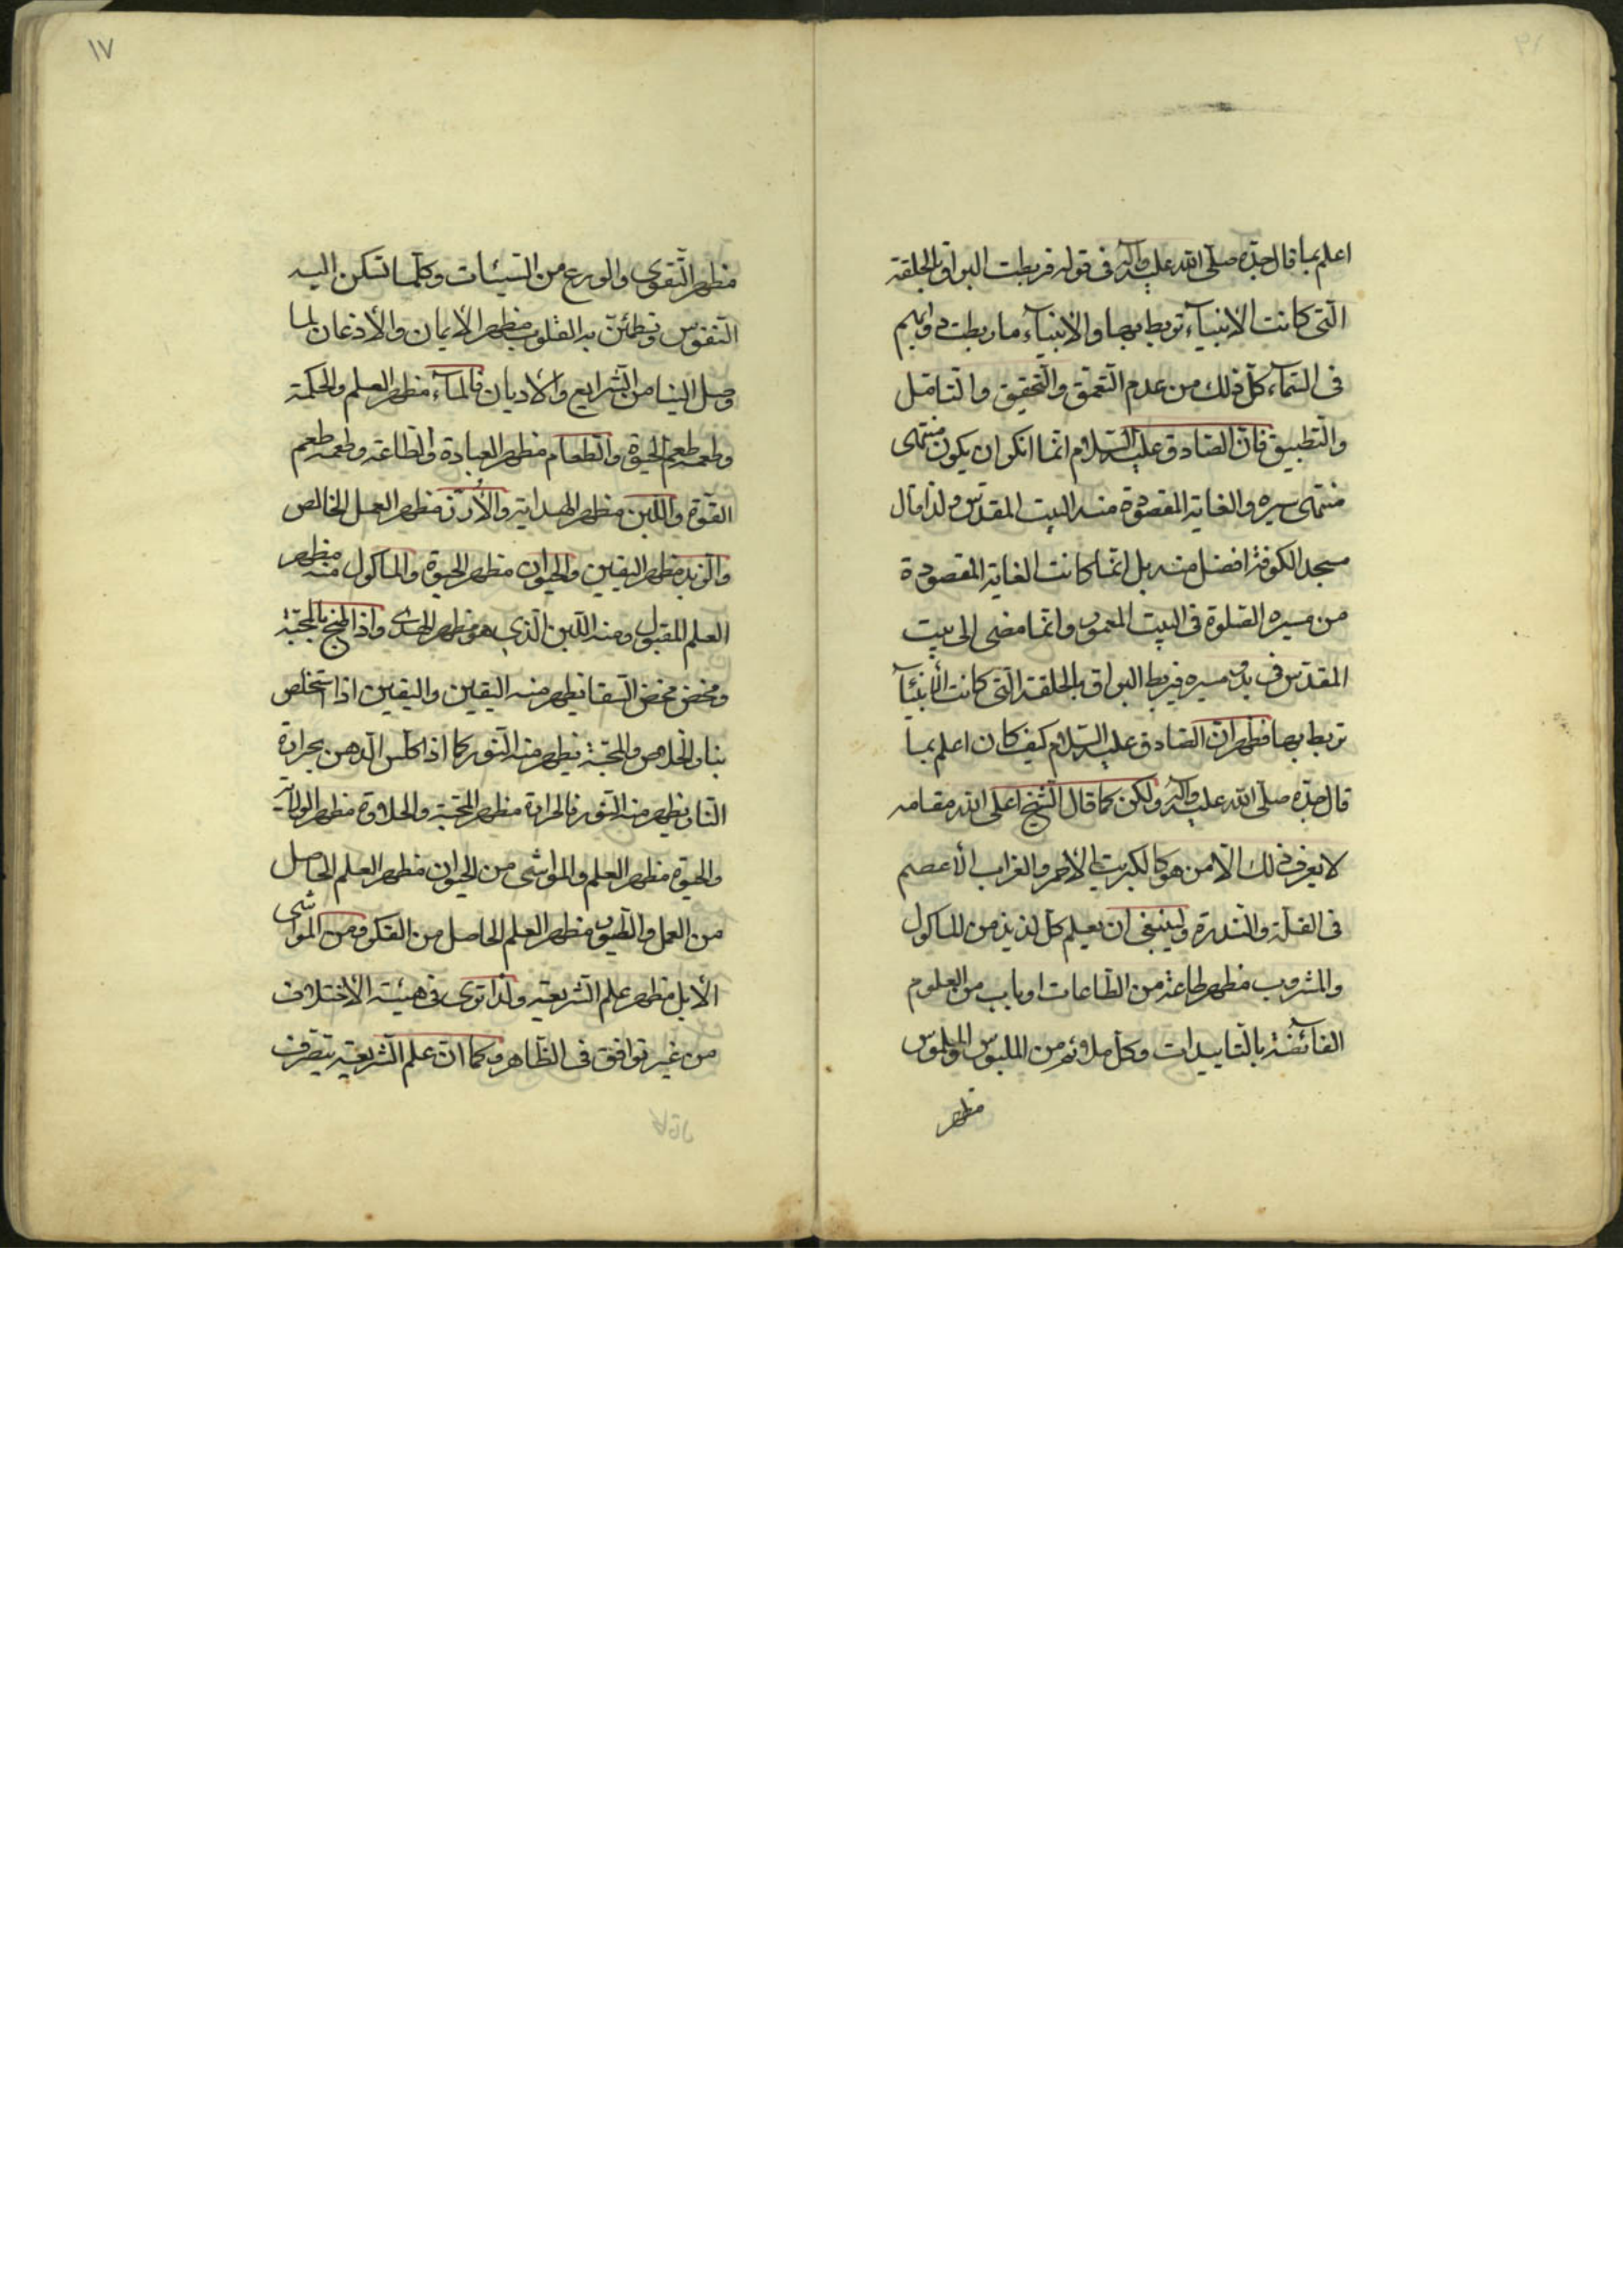 اعلم بما قال جدّه صلّى الله عليه وآله في قوله فربطت البراق بالحلقة
الّتي كانت الانبيآء تربط بها والانبيآء ما ربطت دوابهم
في السّمآء كلّ ذلك من عدم التّعمّق والتّحقيق والتّامّل
والتّطبيق فانّ الصّادق عليه السّلام انّما انكر ان يكون منتهى
منتهى سيره والغاية المقصودة منه البيت المقدّس ولذا قال
مسجد الكوفة افضل منه بل انّما كانت الغاية المقصودة
من مسيره الصّلوة في البيت المعمور وانّما مضى الى بيت
المقدّس في بدو مسيره فيربط البراق بالحلقة الّتي كانت الأنبيآء
تربط بها فظهر انّ الصّادق عليه السّلام كيف كان اعلم بما
قال جدّه صلّى الله عليه وآله ولكن كما قال الشّيخ اعلى الله مقامه
لا يعرف ذلك الّا من هو كالكبريت الأحمر والغراب الأعصم
في القلّة والنّدرة ولينبغى ان يعلم كلّ لذيذ من المأكول
والمشروب مظهر طاعة من الطّاعات او باب من العلوم
الفائضة بالتّاييدات وكلّ ملاوئم من الملبوس والملموس
مظهر
١٧
مظهر التّقوى والورع من السّيّئات وكلّما تسكن اليه
النّفوس وتطمئنّ به القلوب مظهر الأيمان والأذعان لما
وصل الينا من الشّرايع والأديان فالمآء مظهر العلم والحكمة
وطعمه طعم الحيوة والطّعام مظهر العبادة والطّاعة وطعمه طعم
القوّة واللّبن مظهر الهداية والأرز مظهر العمل الخالص
والزّبد مظهر اليقين والحيوان مظهر الحيوة والمأكول منه مظهر
العلم المقبول ومنه اللّبن الّذي هو مظهر الهدى واذا امخج بالمحبّة
ومخض مخض السّقا يظهر منه اليقين واليقين اذا استخلص
بنار الخلاص والمحبّة يظهر منه النّور كما اذا كلّس الدّهن بحرارة
النّار يظهر منه النّور فالحرارة مظهر المحبّة والحلاوة مظهر الولاية
والحيوة مظهر العلم والمواشى من الحيوان مظهر العلم الحاصل
من العمل والطّيور مظهر العلم الحاصل من الفكر ومن المواشى
الأبل مظهر علم الشّريعة ولذا ترى في هيئته الأختلاف
من غير توافق في الظّاهر وكما انّ علم الشّريعة يتصرّف